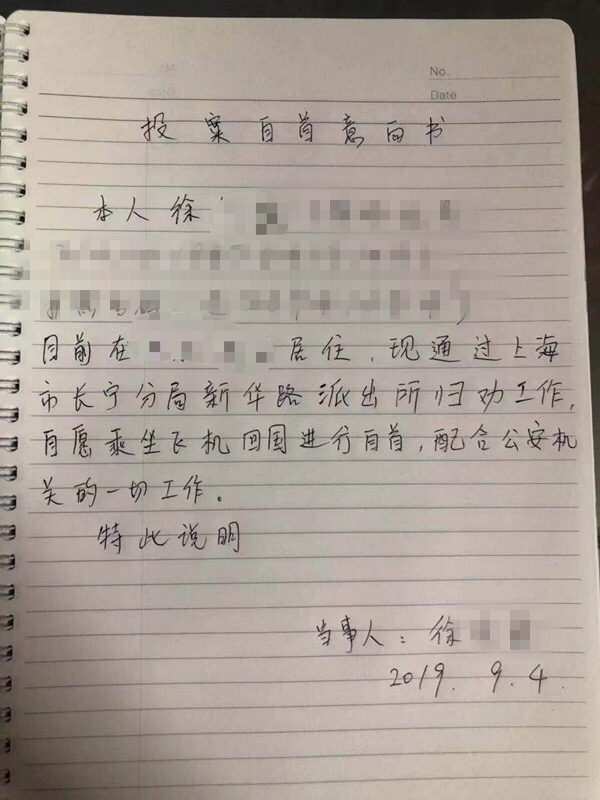 No.
Date
投案自首意向书
本人徐
目前在 居住，现通过上海
市长宁分局新华路派出所归劝工作，
自愿乘坐飞机回国进行自首，配合公安机
关的一切工作。
特此说明
当事人：徐
2019. 9. 4.